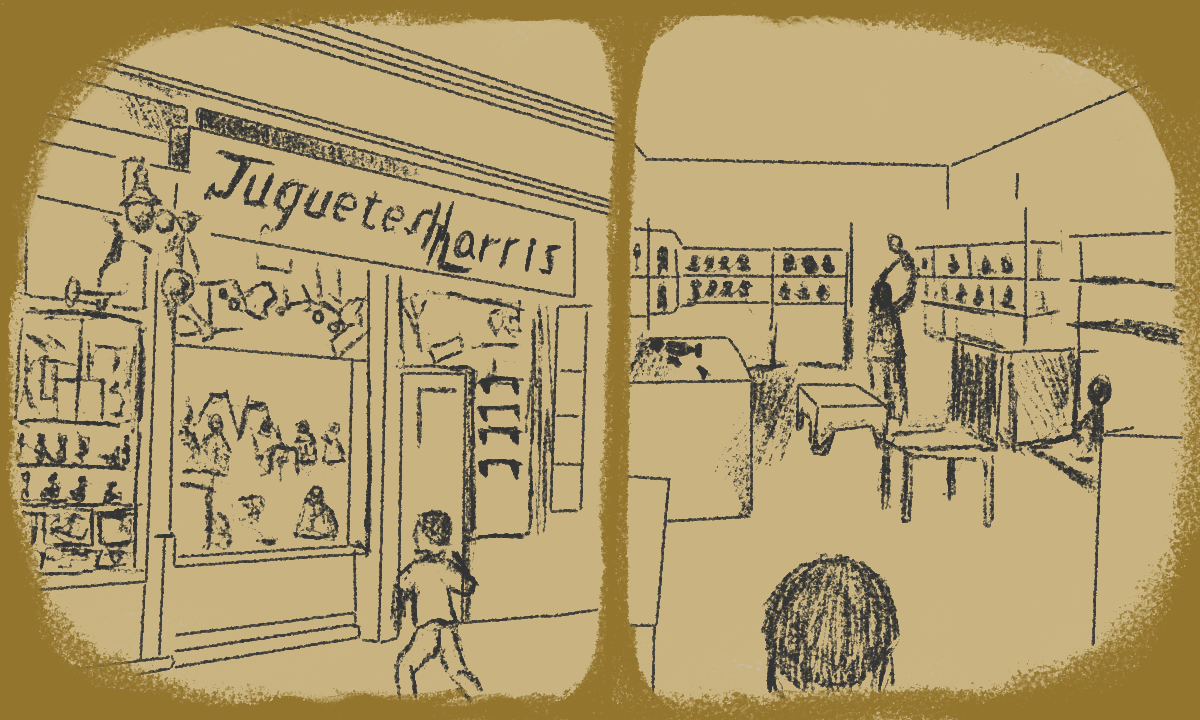 Juguetes Harris